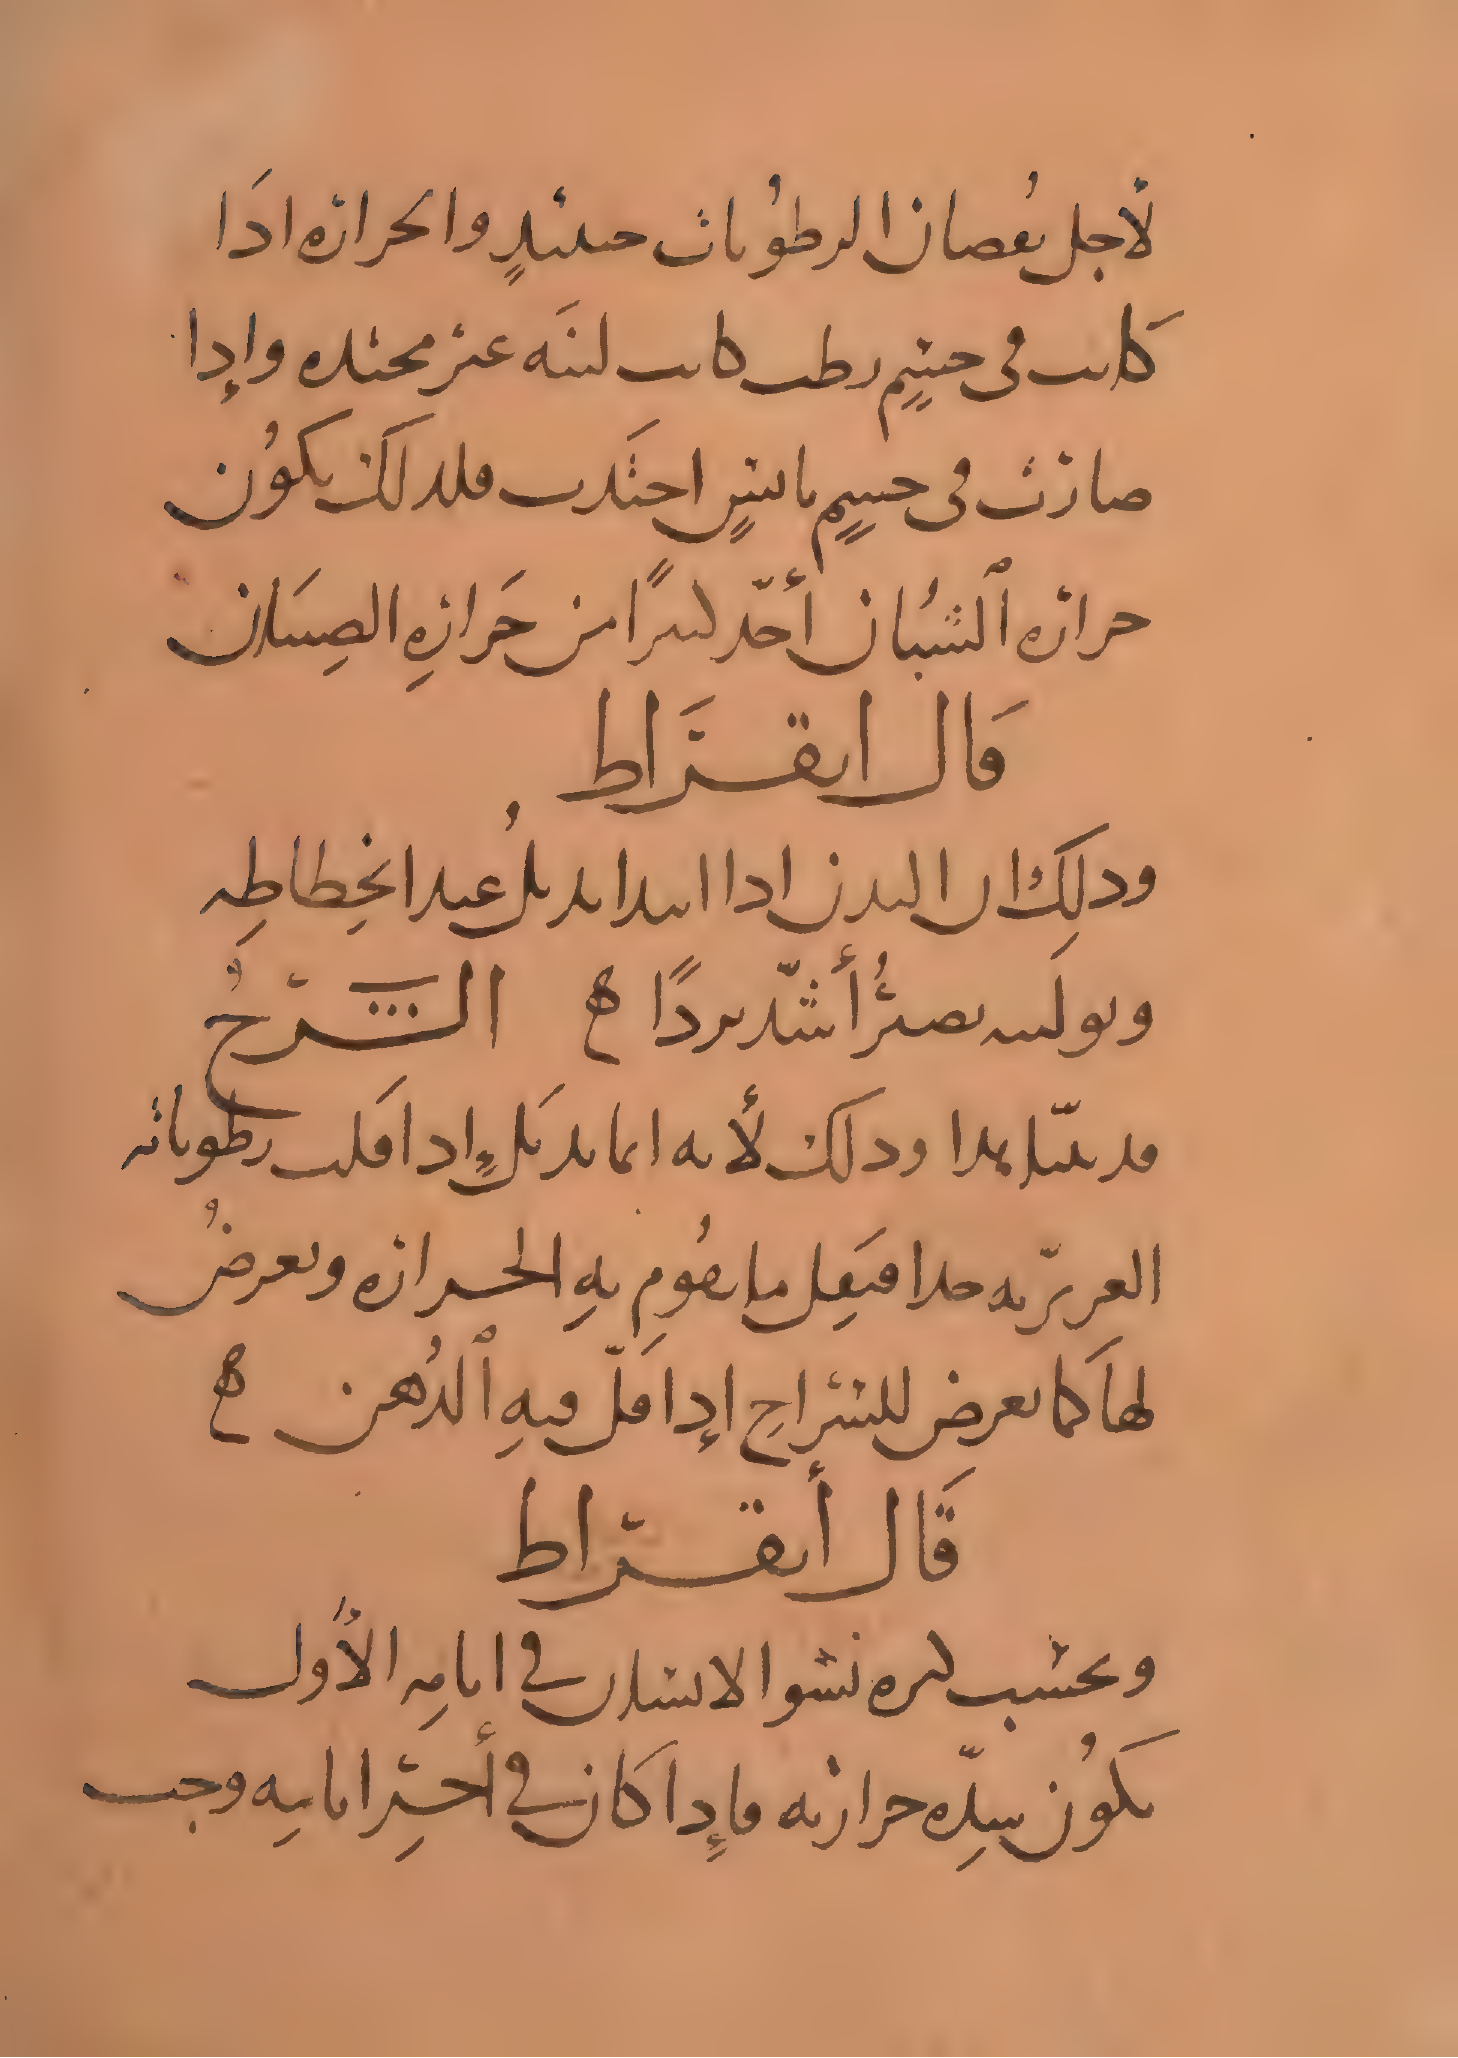 لأجل نقصان الرطوبات حينئذٍ والحرارة اذَا
كانت في جسمٍ رطب كانت لينَه غير محتده وإذا
صارت في جسمٍ يابسٍ احتَدت فلذلكَ يكوُن
حرارة ٱلشبُان أحّد كثيرًا من حَرارةِ الصبيَان
قَال ابقرَاط
وذلِكَ ان البدن اذا ابتدا يذبلُ عند انحِطاطِه
وتوليَه يصيرُ أشّد بردًا ه الشّرحُ
قد بيّنا هذا وذلكَ لأنه انما يذبَل إذا قَلت رطوباته
الغريزّيه جدا فيَقِل ما يقوُم بهِ الحرارة ويعرضُ
لهَا كما يعرض للسراجِ إذا قَلّ فيهِ ٱلدُهن ه
قَال أبقرّاط
وبحسب كثره نشو الانسان في ايامِه الأَول
يَكوُن شِدّه حرارته فإذا كَان في أخيرِ ايامِه وجب